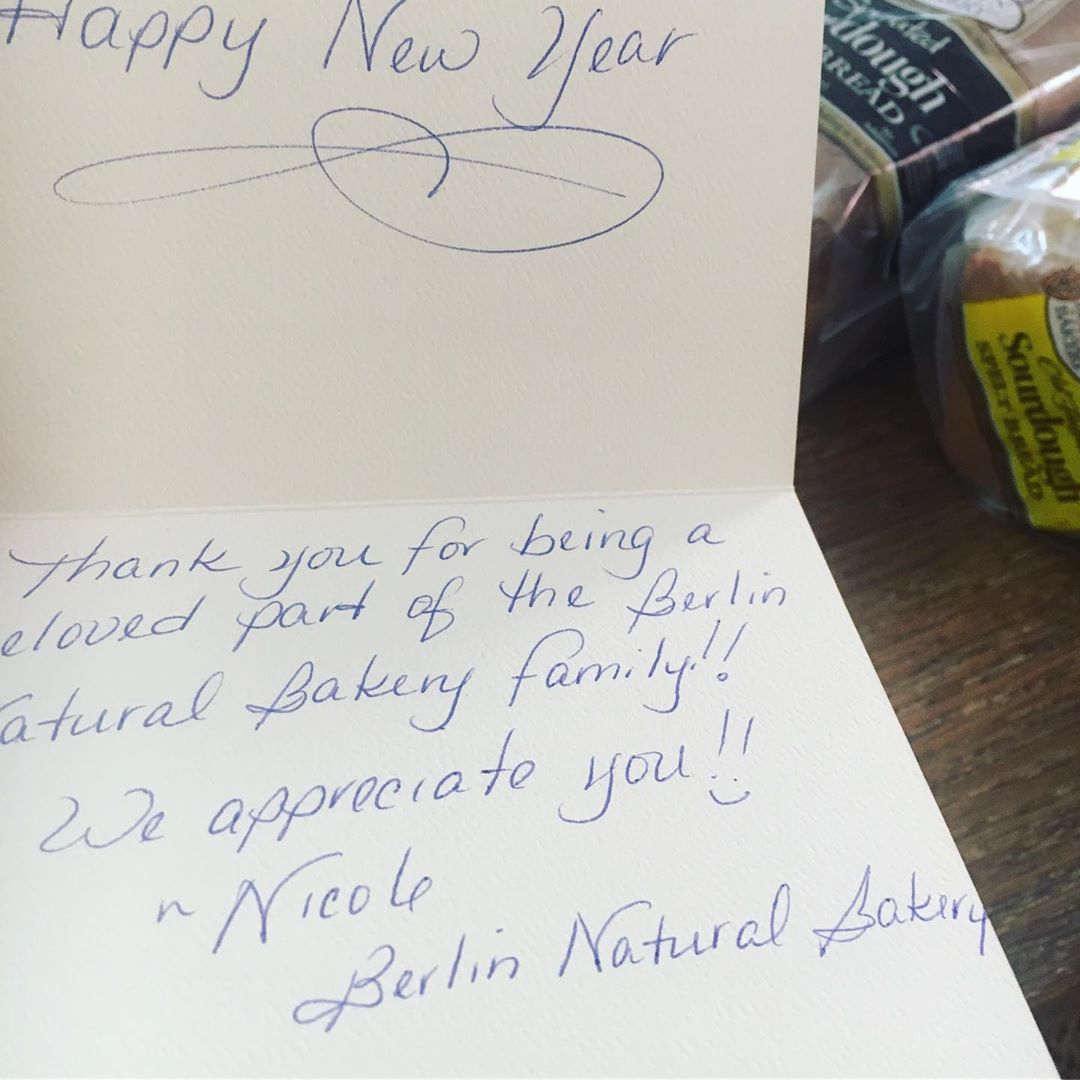 Happy New Year
Thank you for being a
eloved part of the Berlin
atural Bakery family!!
We appreciate you!!
~ Nicole
Berlin Natural Bakery
dough
BREAD
Sourdough
SPELT BREAD